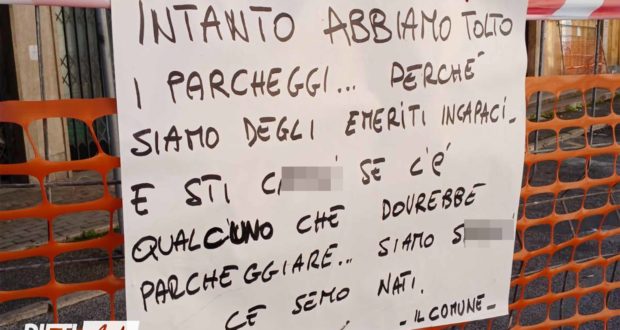 INTANTO ABBIAMO TOLTO
I PARCHEGGI... PERCHÉ
SIAMO DEGLI EMERITI INCAPACI_
E STI C SE C'È
QUALCUNO CHE DOVREBBE
PARCHEGGIARE... SIAMO S
CE SEMO NATI.
- IL COMUNE -